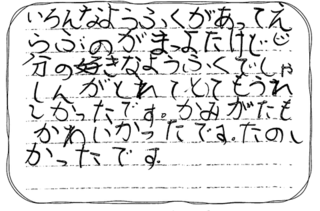 いろんなようふくがあってえ
らぶのがまよったけど
分の好きなようふくでしゃ
しんがとれてとてもうれ
しかったです。かみがたも
かわいかったです。たのし
かったです。